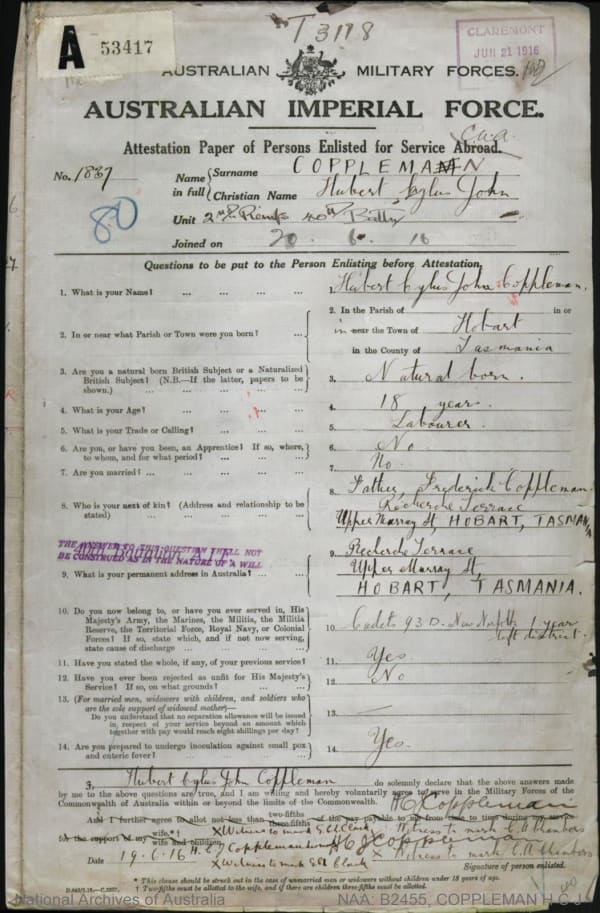 T 3178
A 53417
CLAREMONT
JUN 21 1916
AUSTRALIAN MILITARY FORCES.
AUSTRALIAN IMPERIAL FORCE.
Attestation Paper of Persons Enlisted for Service Abroad.
No. 1837
Name in full
Surname COPPLEMAN
Christian Name Hubert Cylus John
80
Unit 40th Battn
Joined on 20. 6. 16
Questions to be put to the Person Enlisting before Attestation.
1. What is your Name? ... ... ... ...
1. Hubert Cylus John Coppleman.
2. In or near what Parish or Town were you born? ...
2. In the Parish of in or
in near the Town of Hobart
in the County of Tasmania
3. Are you a natural born British Subject or a Naturalized British Subject? (N.B.—If the latter, papers to be shown.) ... ... ...
3. Natural born.
4. What is your Age? ... ... ... ...
4. 18 years.
5. What is your Trade or Calling? ... ... ...
5. Labourer.
6. Are you, or have you been, an Apprentice? If so, where, to whom, and for what period? ... ... ...
6. No
7. Are you married? ... ... ... ...
7. No.
8. Who is your next of kin? (Address and relationship to be stated) ... ... ... ...
8. Father, Frederick Coppleman
Recherche Terrace
Upper Murray St HOBART, TASMANIA
THE ANSWER TO THIS QUESTION SHALL NOT
BE CONSTRUED AS IN THE NATURE OF A WILL
40th Battalion A.I.F.
9. What is your permanent address in Australia? ...
9. Recherche Terrace
Upper Murray St,
HOBART, TASMANIA.
10. Do you now belong to, or have you ever served in, His Majesty's Army, the Marines, the Militia, the Militia Reserve, the Territorial Force, Royal Navy, or Colonial Forces? If so, state which, and if not now serving, state cause of discharge ... ... ...
10. Cadets 93 D. New Norfolk 1 year
left district.
11. Have you stated the whole, if any, of your previous service?
11. Yes
12. Have you ever been rejected as unfit for His Majesty's Service? If so, on what grounds? ... ...
12. No
13. (For married men, widowers with children, and soldiers who are the sole support of widowed mother)—
Do you understand that no separation allowance will be issued in respect of your service beyond an amount which together with pay would reach eight shillings per day?
13. —
14. Are you prepared to undergo inoculation against small pox and enteric fever? ... ... ...
14. Yes.
I, Hubert Cylus John Coppleman do solemnly declare that the above answers made
by me to the above questions are true, and I am willing and hereby voluntarily agree to serve in the Military Forces of the
Commonwealth of Australia within or beyond the limits of the Commonwealth.
H C J Coppleman
And I further agree to allot not less than two-fifths three-fifths of the pay payable to me from time to time during my service
for the support of my wife.*† wife and children.
Date 19.6.16 H C J Coppleman
Signature of person enlisted.
* This clause should be struck out in the case of unmarried men or widowers without children under 18 years of age.
† Two-fifths must be allotted to the wife, and if there are children three-fifths must be allotted.
National Archives of Australia
NAA: B2455, COPPLEMAN H C J